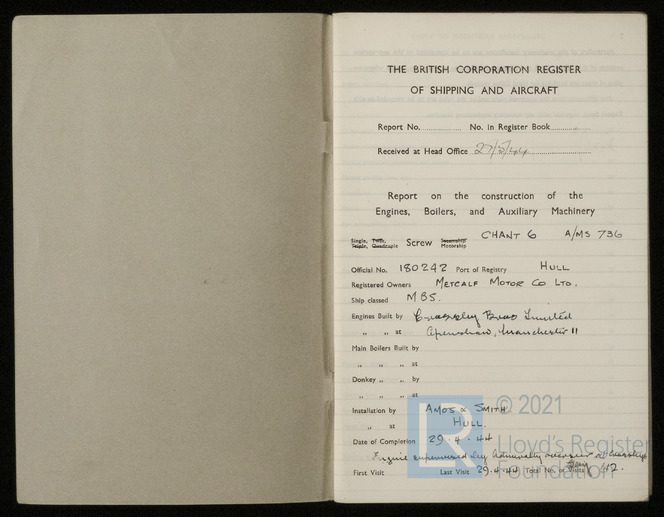 THE BRITISH CORPORATION REGISTER
OF SHIPPING AND AIRCRAFT
Report No. No. in Register Book
Received at Head Office 27/5/44
Report on the construction of the
Engines, Boilers, and Auxiliary Machinery
Single, Twin, Triple, Quadruple Screw Steamship Motorship CHANT 6 A/MS 736
Official No. 180242 Port of Registry HULL
Registered Owners METCALF MOTOR CO LTD.
Ship classed MBS.
Engines Built by Crossley Bros Limited
„ „ at Openshaw, Manchester 11
Main Boilers Built by
„ „ at
Donkey „ „ by
„ „ at
Installation by AMOS & SMITH
„ at HULL.
Date of Completion 29.4.44
Engine supervised by Admiralty
First Visit Last Visit 29.4.44 Total No. of Visits 42.
LR © 2021
Lloyd's Register
Foundation